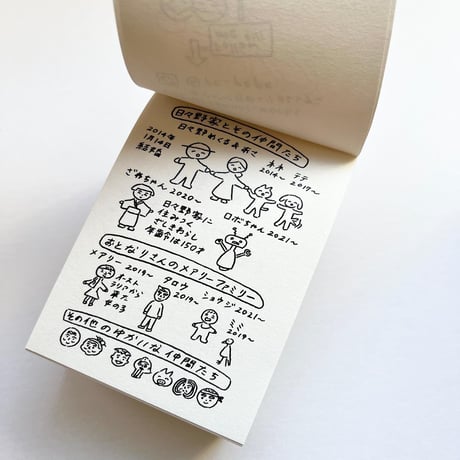 日々野家とその仲間たち
日々野めくる&おさ
2014年
1月14日
結婚
ネネ 2014〜
テテ 2017〜
ざわちゃん 2020〜
日々野家に
住みつく
ざしきわらし
年齢は150才
ロボちゃん 2021〜
おとなりさんのメアリーファミリー
メアリー 2019〜
オースト
ラリアから
来た
女の子
タロウ
2019〜
ショウジ 2021〜
ミミ
2019〜
その他のゆかいな仲間たち